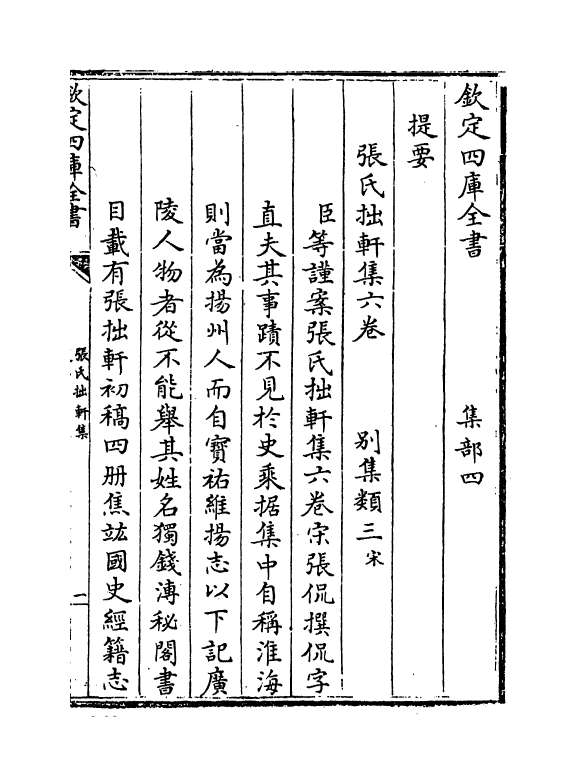 欽定四庫全書　集部四
提要
張氏拙軒集六卷　別集類三宋
臣等謹案張氏拙軒集六卷宋張侃撰侃字
直夫其事蹟不見於史乘据集中自稱淮海
則當為揚州人而自寶祐維揚志以下記廣
陵人物者從不能舉其姓名獨錢溥秘閣書
目載有張拙軒初稿四册焦竑國史經籍志
欽定四庫全書
張氏拙軒集